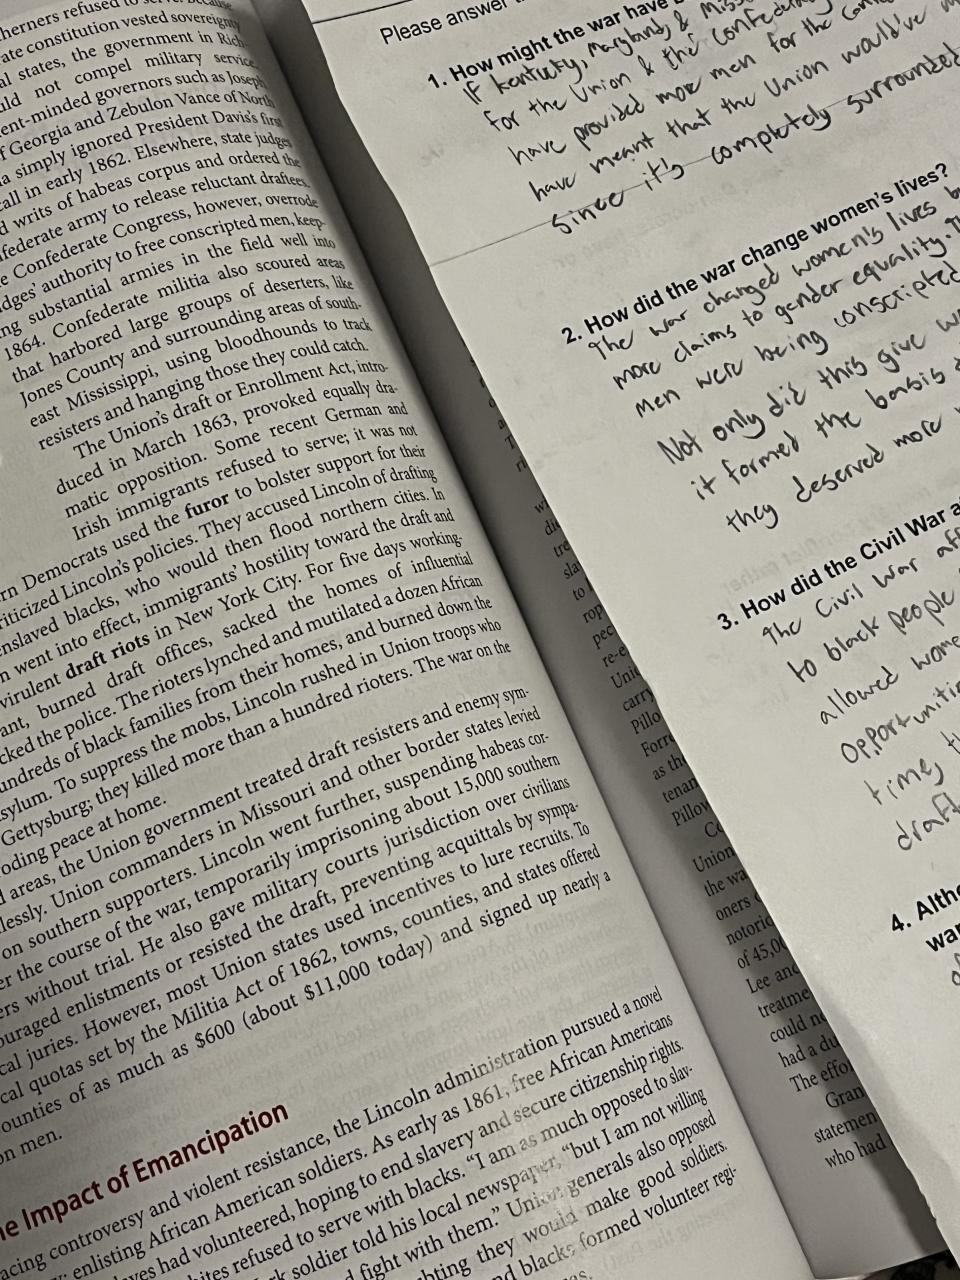 refused to serve because
constitution vested sovereignty
states, the government in
not compel military service.
governors such as Joseph
Georgia and Zebulon Vance of North
simply ignored President Davis's first
call in early 1862. Elsewhere, state judges
writs of habeas corpus and ordered the
army to release reluctant draftees.
Confederate Congress, however, overrode
authority to free conscripted men, keep-
substantial armies in the field well into
1864. Confederate militia also scoured areas
that harbored large groups of deserters, like
Jones County and surrounding areas of south-
east Mississippi, using bloodhounds to track
resisters and hanging those they could catch.
The Union's draft or Enrollment Act, intro-
duced in March 1863, provoked equally dra-
matic opposition. Some recent German and
Irish immigrants refused to serve; it was not
Democrats used the furor to bolster support for their
Lincoln's policies. They accused Lincoln of drafting
blacks, who would then flood northern cities. In
went into effect, immigrants' hostility toward the draft and
virulent draft riots in New York City. For five days working-
burned draft offices, sacked the homes of influential
the police. The rioters lynched and mutilated a dozen African
of black families from their homes, and burned down the
To suppress the mobs, Lincoln rushed in Union troops who
Gettysburg; they killed more than a hundred rioters. The war on the
peace at home.
areas, the Union government treated draft resisters and enemy sym-
Union commanders in Missouri and other border states levied
on southern supporters. Lincoln went further, suspending habeas cor-
the course of the war, temporarily imprisoning about 15,000 southern
without trial. He also gave military courts jurisdiction over civilians
enlistments or resisted the draft, preventing acquittals by sympa-
juries. However, most Union states used incentives to lure recruits. To
quotas set by the Militia Act of 1862, towns, counties, and states offered
of as much as $600 (about $11,000 today) and signed up nearly a
men.
Impact of Emancipation
controversy and violent resistance, the Lincoln administration pursued a novel
enlisting African American soldiers. As early as 1861, free African Americans
had volunteered, hoping to end slavery and secure citizenship rights.
refused to serve with blacks. "I am as much opposed to slav-
soldier told his local newspaper, "but I am not willing
fight with them." Union generals also opposed
they would make good soldiers.
blacks formed volunteer regi-
Union
the
of
Lee and
could
had a
The
who had
Please answer
1. How might the war have
If Kentucky, Maryland, &
for the Union & the
have provided more men for the
have meant that the Union would've
since it's completely surrounded
2. How did the war change women's lives?
The war changed women's lives
more claims to gender equality.
men were being conscripted
Not only did this give
it formed the basis
they deserved more
3. How did the Civil War
The Civil War
to black people
allowed
time,
draft
4.